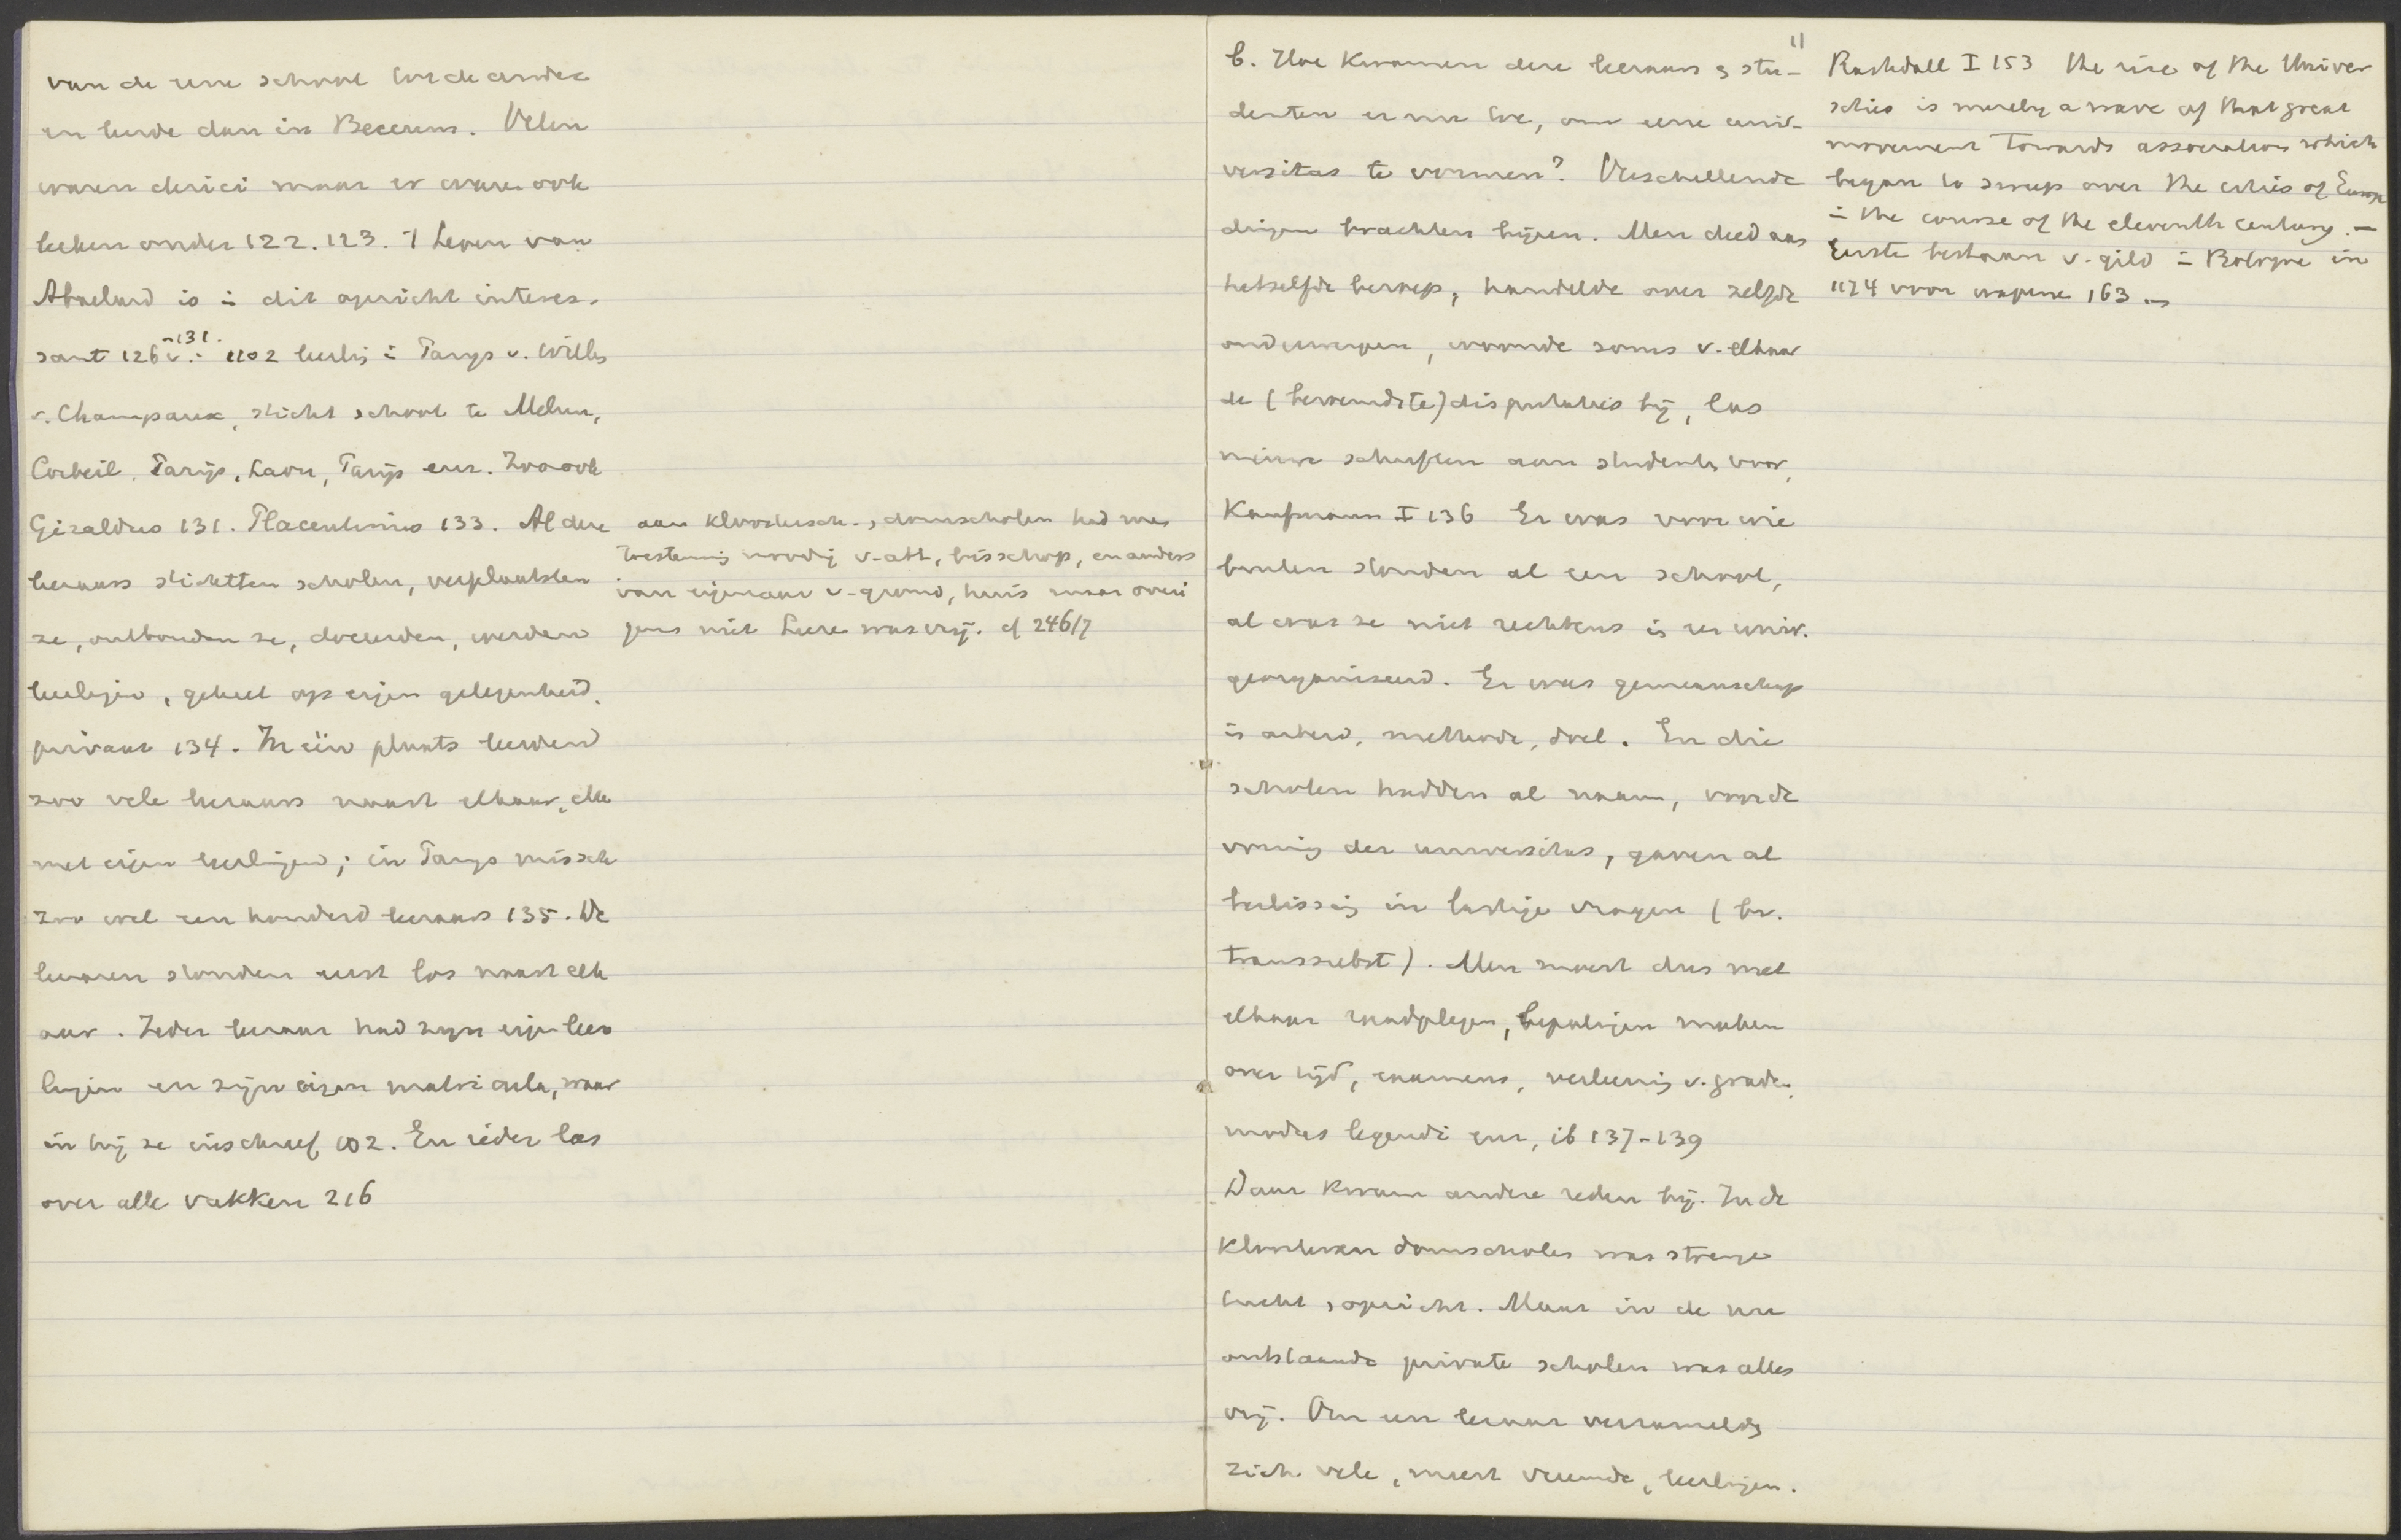 van de eene school tot de andere
en leerde dan in Beccrum. Velen
waren clerici maar er waren ook
leeken onder 122. 123. 't Leven van
Abaelard is i dit opzicht interes-
sant 126 v.: 1102 leerling i Parijs v. Willem
-131.
v. Champeaux, sticht school te Melun,
Corbeil, Parijs, Laon, Parijs enz. Zoo ook
Giraldus 131. Placentinus 133. Al deze
leeraars stichtten scholen, verplaatsten
ze, ontbonden ze, doceerden, werden
leerlingen, geheel op eigen gelegenheid,
privaat 134. In één plaats leerden
zoo vele leeraars naast elkaar, elk
met eigen leerlingen; in Parijs missch
zoo wel een honderd leeraars 135. De
leeraren stonden eerst los naast elk
aar. Ieder leeraar had zijn eigen leer
lingen en zijn eigen matricula, waar
in hij ze inschreef 102. En ieder las
over alle vakken 216
aan kloostersch.-, domscholen had men
toestemming noodig v-abt, bisschop, en anders
van eigenaar v-grond, huis maar overi
gens met Leere was vrij. cf 246/7
11
b. Hoe kwamen deze leeraars & stu-
denten er nu toe, om eene uni-
versitas te vormen? Verschillende
dingen brachten bijeen. Men deed aan
hetzelfde beroep, handelde over zelfde
onderwerpen, woonde soms v. elkaar
de (beroemdste) disputaties bij, las
nieuwe schriften aan studenten voor,
Kaufmann I 136 Er was voor wie
buiten stonden al een school,
al was ze niet rechtens in een univ.
georganiseerd. Er was gemeenschap
in arbeid, methode, doel. En die
scholen hadden al naam, voor de
vorming der universitas, gaven al
beslissing in lastige vragen (bv.
transsubst). Men moest dus met
elkaar raadplegen, bepalingen maken
over tijd, examens, verleening v. graden,
modus legendi enz, ib 137-139
Daar kwam andere reden bij. In de
Klooster en domscholen was strenge
tucht, opzicht. Maar in de nu
ontstaande private scholen was alles
vrij. Om een leeraar verzamelden
zich vele, meest vreemde, leerlingen.
Rashdall I 153 the rise of the Univer
sities is merely a wave of that great
movement towards association which
began to sweep over the cities of Europe
i the course of the eleventh century. —
Eerste bestaan v. gild i Bologne in
1174 voor wapene 163 —